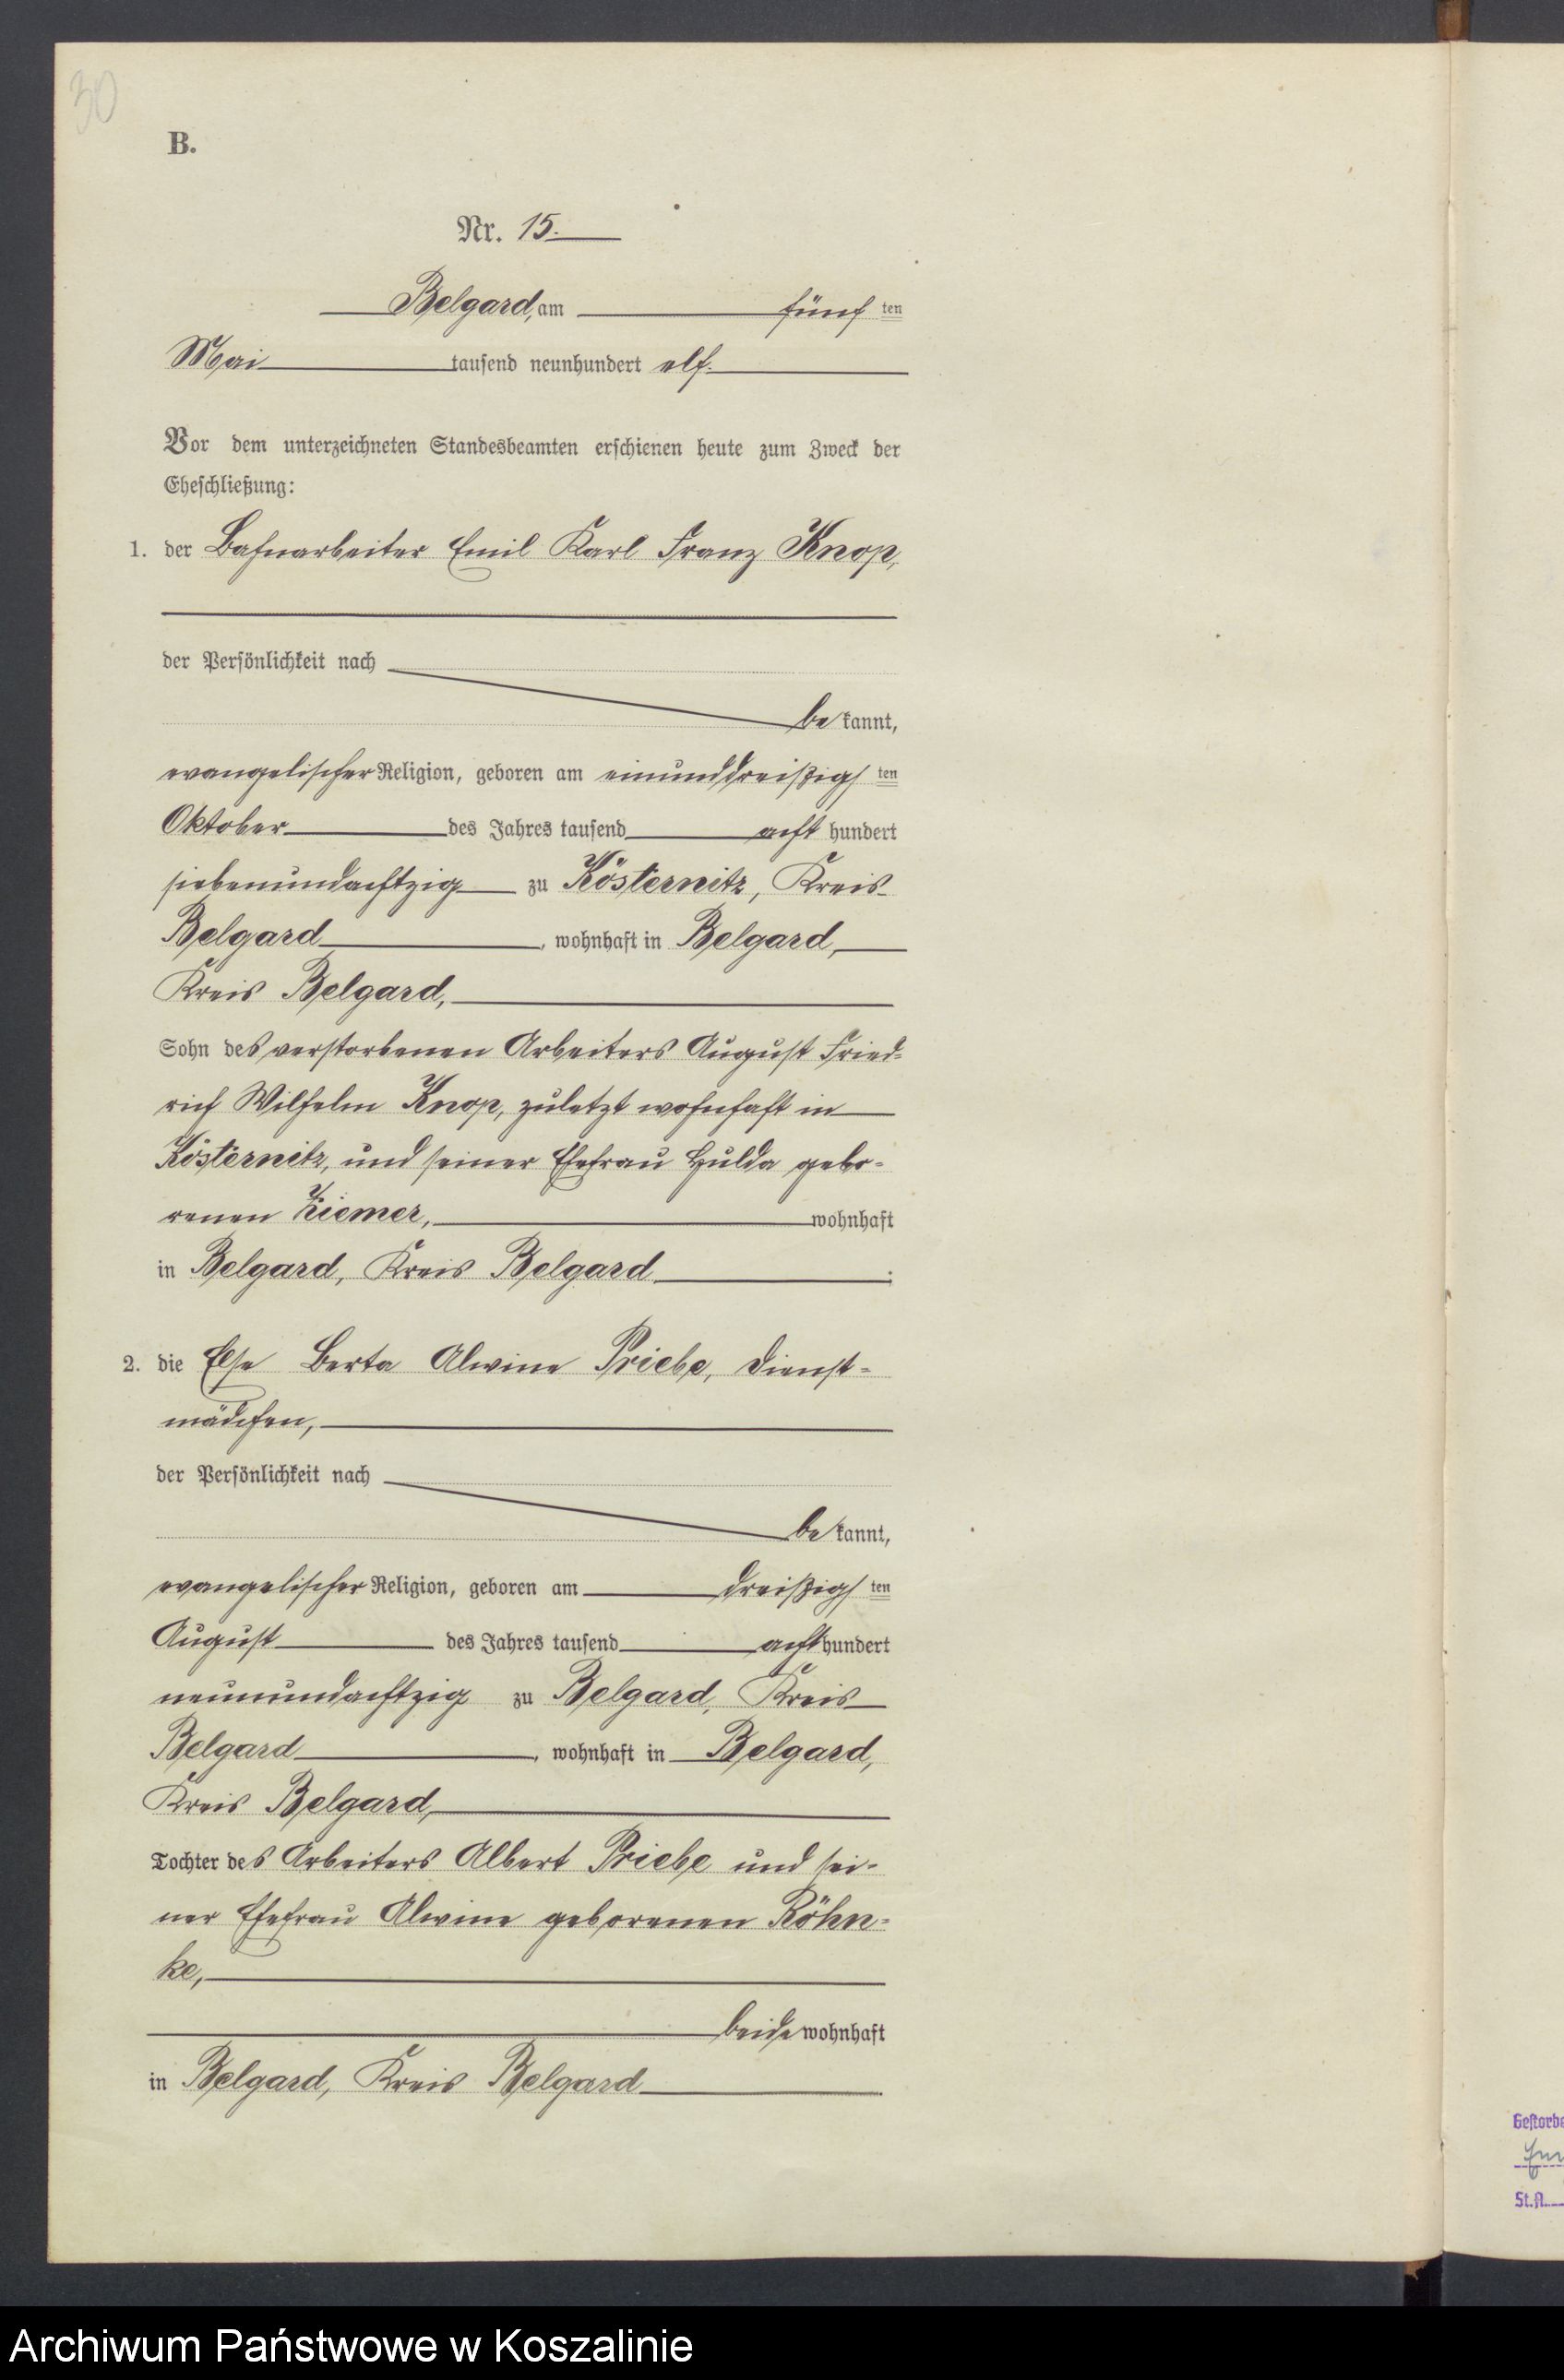 30
B.
Nr. 15.
Belgard, am fünf ten
Mai tausend neunhundert elf.
Vor dem unterzeichneten Standesbeamten erschienen heute zum Zweck der
Eheschließung:
1. der Bahnarbeiter Emil Karl Franz Knop,
der Persönlichkeit nach
be kannt,
evangelischer Religion, geboren am einunddreißigsten
Oktober des Jahres tausend acht hundert
siebenundachtzig zu Kösternitz, Kreis
Belgard, wohnhaft in Belgard,
Kreis Belgard,
Sohn des verstorbenen Arbeiters August Fried-
rich Wilhelm Knop, zuletzt wohnhaft in
Kösternitz, und seiner Ehefrau Hulda gebo-
renen Ziemer, wohnhaft
in Belgard, Kreis Belgard;
2. die Else Berta Alwine Priebe, Dienst-
mädchen,
der Persönlichkeit nach
be kannt,
evangelischer Religion, geboren am dreißigsten
August des Jahres tausend acht hundert
neunundachtzig zu Belgard, Kreis
Belgard, wohnhaft in Belgard,
Kreis Belgard,
Tochter des Arbeiters Albert Priebe und sei-
ner Ehefrau Alwine geborenen Röhn-
ke,
beide wohnhaft
in Belgard, Kreis Belgard.
St.A.
Archiwum Państwowe w Koszalinie